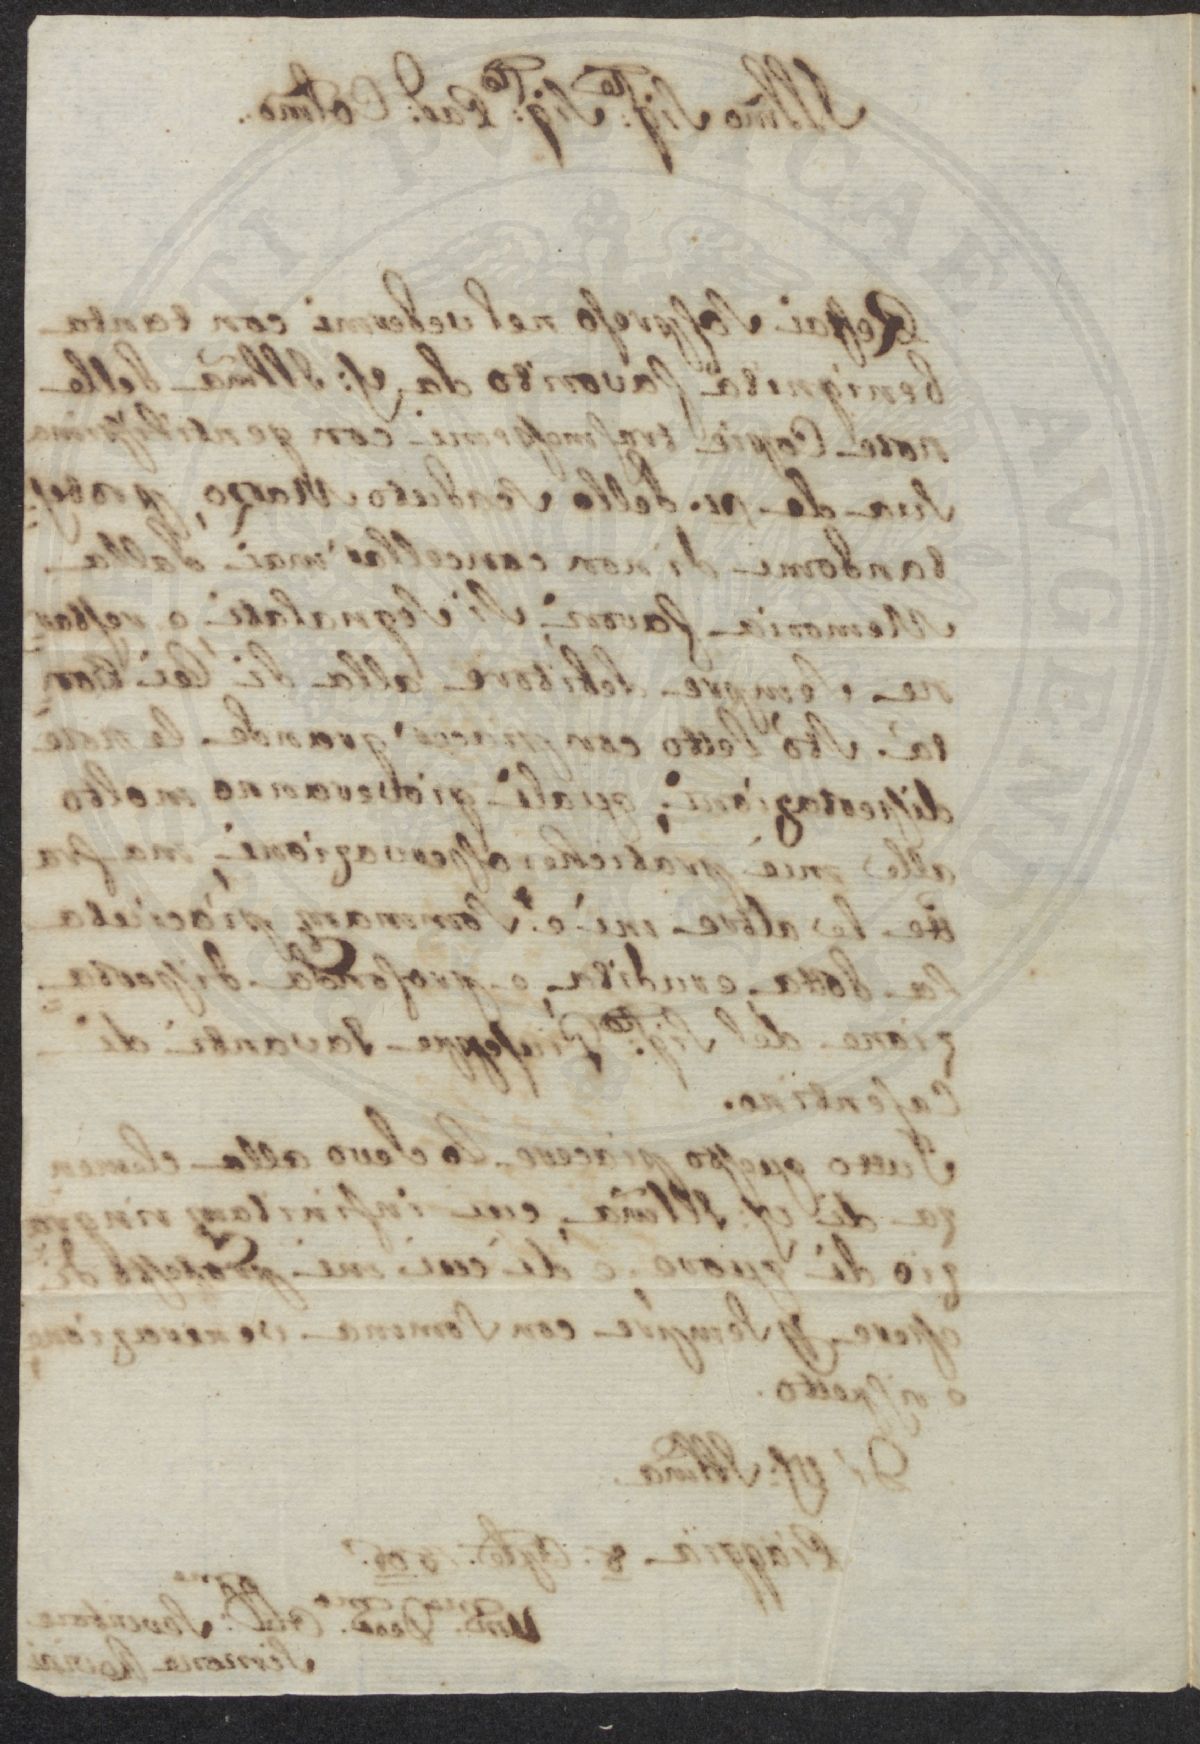 Illmo Sigr: Sigr: Pad: Colmo.
Restai sospreso nel vedermi con tanta
benignità favorito da VS: Illma delle
note Copie trasmessemi con gentilissima
sua de pi. dello scaduto Marzo, protes=
tandomi di non cancellar mai dalla
Memoria favori sì segnalati, e restar
ne sempre debitore alla di lei bon
tà. Hò letto con piacer grande le note
dissertazioni, quali gioveranno molto
alle mie pratiche osservazioni, ma fra
tte le altre mi è sommam. piaciuta
la dotta, erudita, e profonda disserta=
zione del Sigr: Giuseppe Savanti di
Casentino.
Tutto questo piacere lo devo alla clemen
za di VS: Illma, cui infinitam. ringra
zio di cuore, e di cui mi protesto di
essere p sempre con somma venerazione,
e rispetto.
Di VS: Illma.
Piaggia 8. Aple.
Umo. Devo. Obbl: Servitore